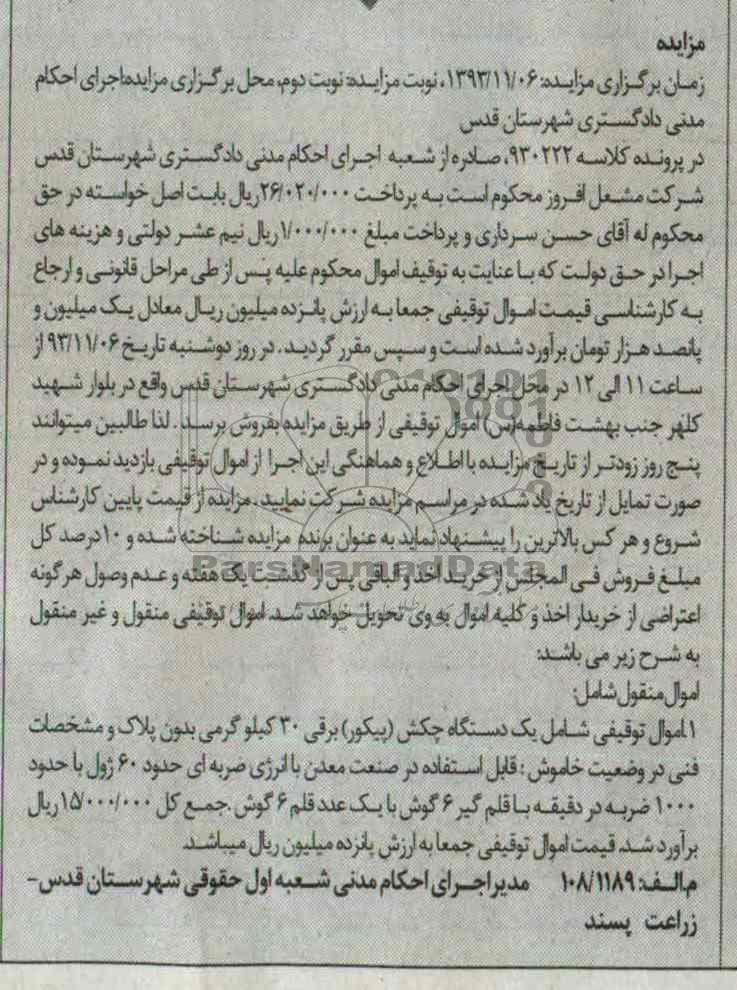 مزایده
زمان برگزاری مزایده: ۱۳۹۳/۱۱/۰۶، نوبت مزایده: نوبت دوم، محل برگزاری مزایده:اجرای احکام
مدنی دادگستری شهرستان قدس
در پرونده کلاسه ۹۳۰۲۲۲، صادره از شعبه اجرای احکام مدنی دادگستری شهرستان قدس
شرکت مشعل افروز محکوم است به پرداخت ۲۶/۰۲۰/۰۰۰ریال بابت اصل خواسته در حق
محکوم له آقای حسن سرداری و پرداخت مبلغ ۱/۰۰۰/۰۰۰ ریال نیم عشر دولتی و هزینه های
اجرا در حق دولت که با عنایت به توقیف اموال محکوم علیه پس از طی مراحل قانونی و ارجاع
به کارشناسی قیمت اموال توقیفی جمعا به ارزش پانزده میلیون ریال معادل یک میلیون و
پانصد هزار تومان برآورد شده است و سپس مقرر گردید. در روز دوشنبه تاریخ ۹۳/۱۱/۰۶ از
ساعت ۱۱ الی ۱۲ در محل اجرای احکام مدنی دادگستری شهرستان قدس واقع در بلوار شهید
کلهر جنب بهشت فاطمه(س) اموال توقیفی از طریق مزایده بفروش برسد. لذا طالبین میتوانند
پنج روز زودتر از تاریخ مزایده با اطلاع و هماهنگی این اجرا از اموال توقیفی بازدید نموده و در
صورت تمایل از تاریخ یاد شده در مراسم مزایده شرکت نمایید. مزایده از قیمت پایین کارشناس
شروع و هر کس بالاترین را پیشنهاد نماید به عنوان برنده مزایده شناخته شده و ۱۰درصد کل
مبلغ فروش فی المجلس از خرید اخذ و الباقی پس از گذشت یک هفته و عدم وصول هر گونه
اعتراضی از خریدار اخذ و کلیه اموال به وی تحویل خواهد شد. اموال توقیفی منقول و غیر منقول
به شرح زیر می باشد:
اموال منقول شامل:
۱.اموال توقیفی شامل یک دستگاه چکش (پیکور) برقی ۳۰ کیلو گرمی بدون پلاک و مشخصات
فنی در وضعیت خاموش : قابل استفاده در صنعت معدن با انرژی ضربه ای حدود ۶۰ ژول با حدود
۱۰۰۰ ضربه در دقیقه با قلم گیر ۶ گوش با یک عدد قلم ۶ گوش .جمع کل ۱۵/۰۰۰/۰۰۰ ریال
برآورد شد. قیمت اموال توقیفی جمعا به ارزش پانزده میلیون ریال میباشد.
م.الف: ۱۰۸/۱۱۸۹ مدیر اجرای احکام مدنی شعبه اول حقوقی شهرستان قدس-
زراعت پسند
ParsNamadData